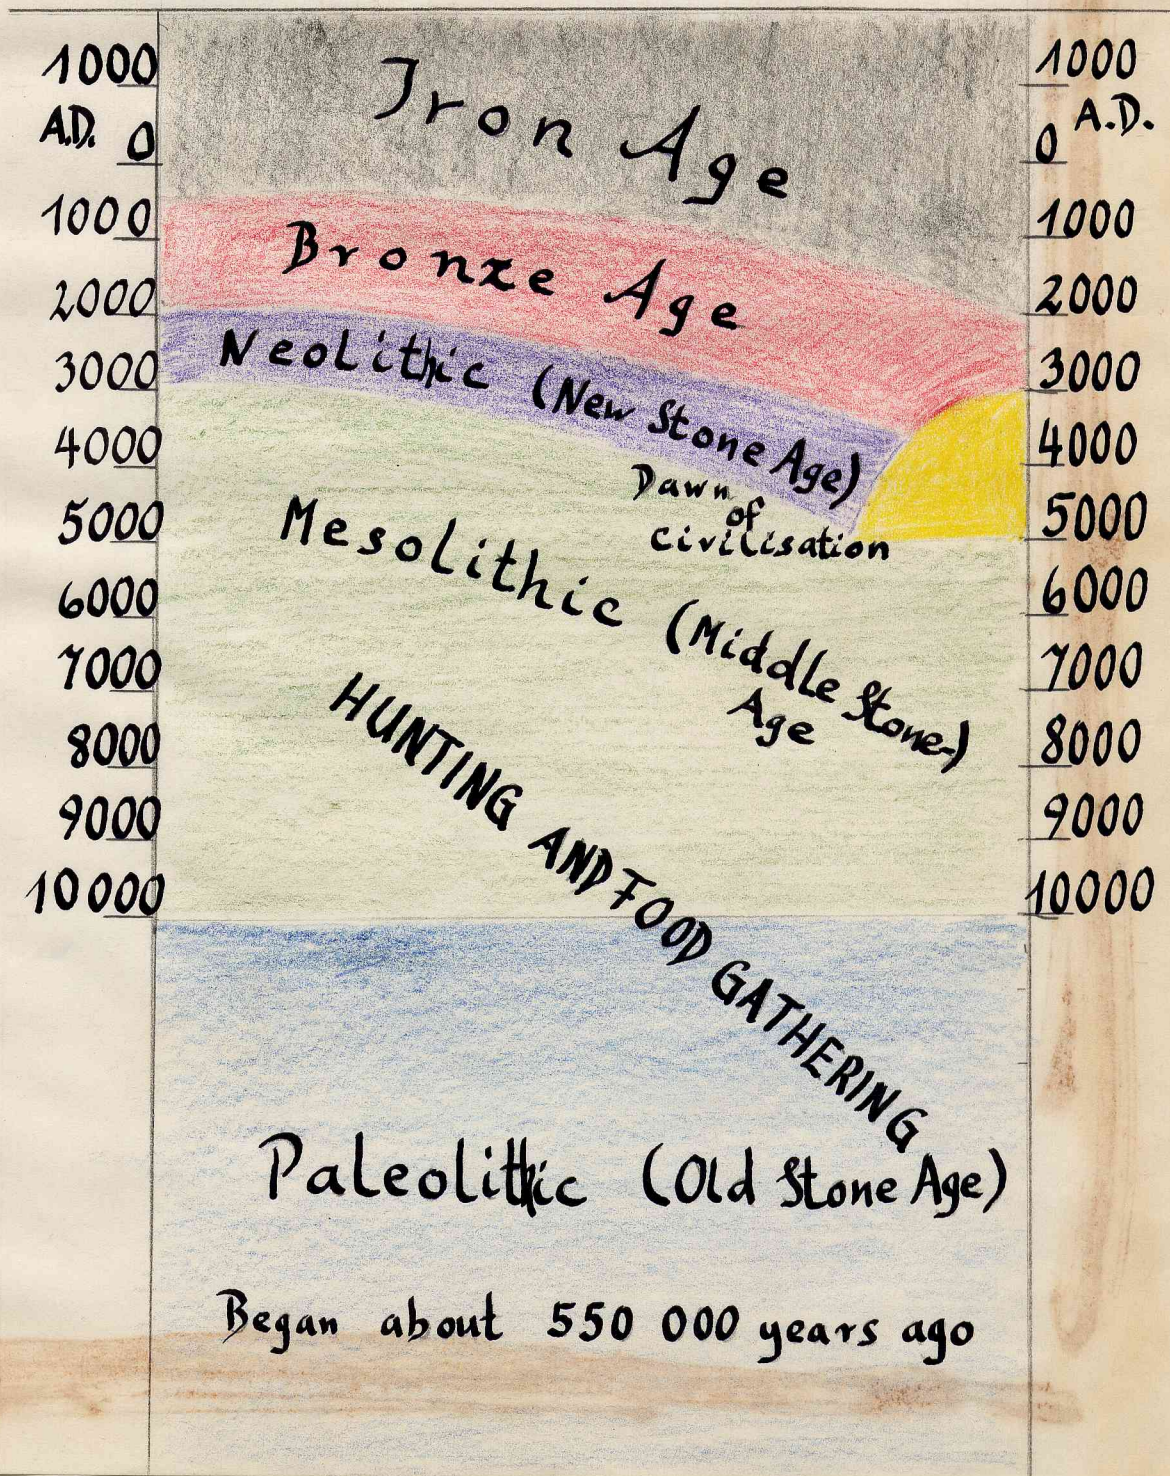 1000
A.D.
0
1000
2000
3000
4000
5000
6000
7000
8000
9000
10 000
Iron Age
Bronze Age
Neolithic (New Stone Age)
Dawn
of
civilisation
Mesolithic (Middle Stone-)
Age
HUNTING AND FOOD GATHERING
Paleolithic (Old Stone Age)
Began about 550 000 years ago
1000
A.D.
0
1000
2000
3000
4000
5000
6000
7000
8000
9000
10000